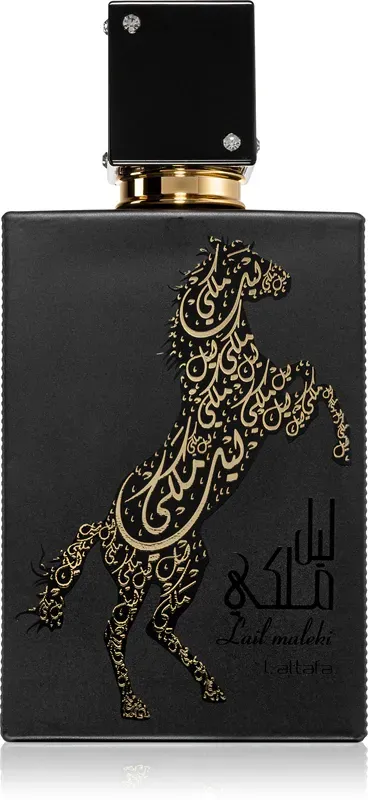 ليل
ملكي
Lail maleki
Lattafa